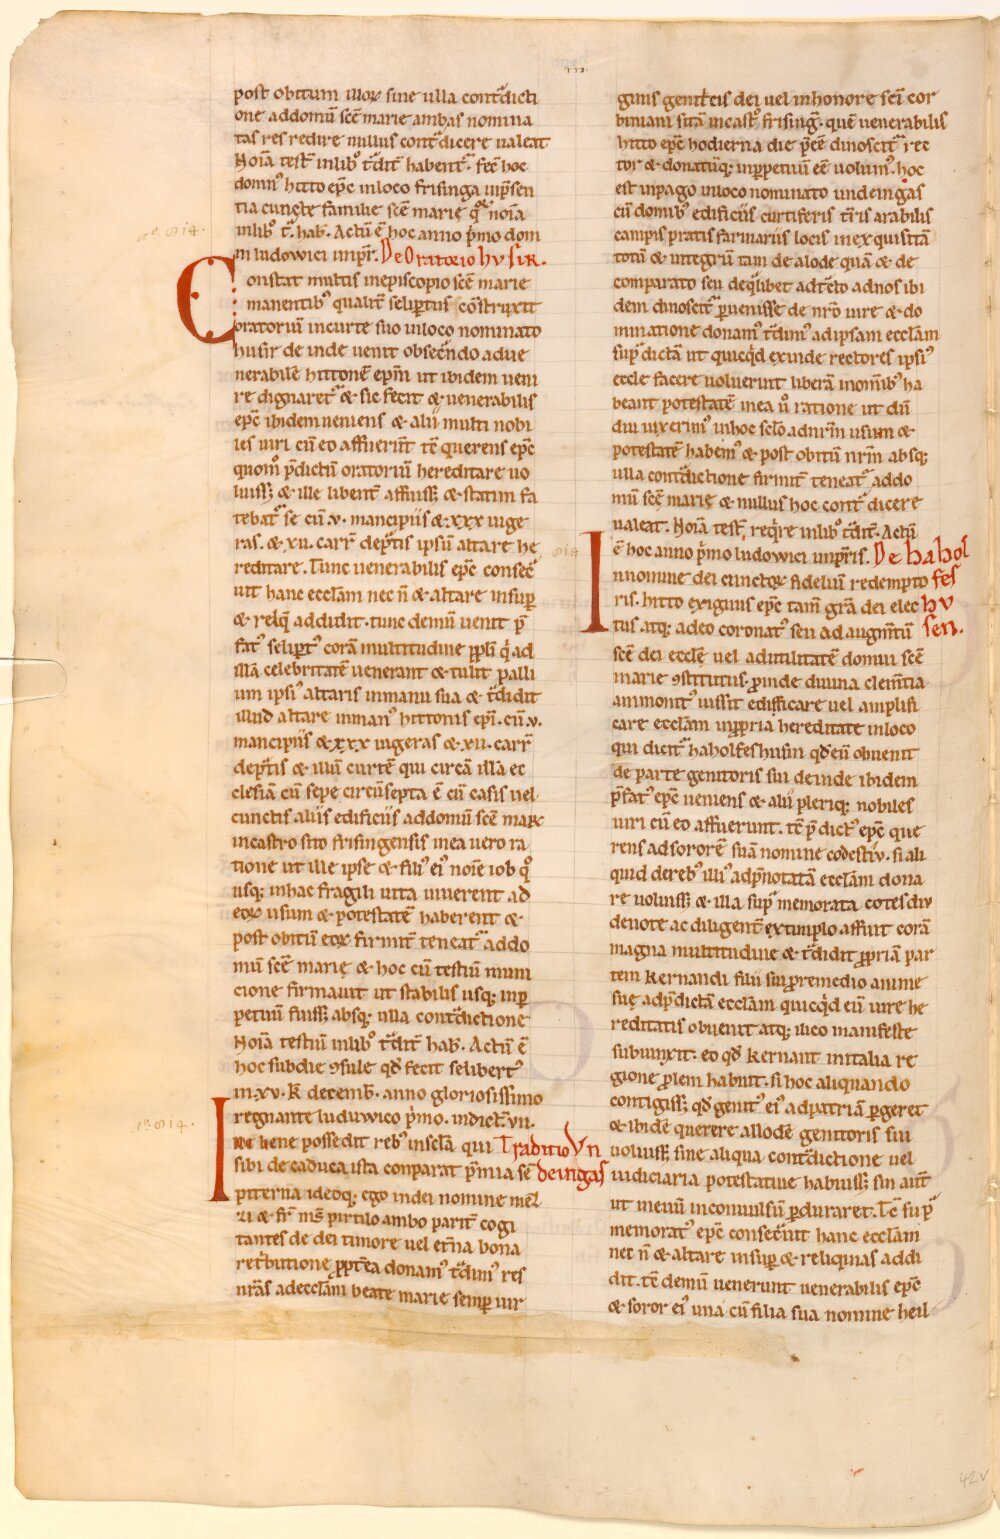 post obitum illoꝝ sine ulla cont̃dicti
one addomũ scẽ marie ambas nomina
tas res redire nullus cont̃ dicere ualeat
Noĩa test̃ inlibº t̃dit̃ habent̃. fec̃ hoc
domn⁹ hitto ep̃c inloco frisinga inp̃sen
tia cunctę familie scẽ marie q̃ noĩa
inlibº t̃. hab̃. Actũ ẽ hoc anno p̃mo dom
ni ludowici inp̃r. De Oratorio hvsir.
Constat multis inepiscopio scẽ marie
manentibº qualit̃ selip̃tus cõstruxit
oratoriũ incurte suo inloco nominato
husir de inde uenit obsec̃ndo adue
nerabilẽ hittonẽ ep̃m ut ibidem ueni
re dignaret̃ & sic fecit & uenerabilis
ep̃c ibidem ueniens & alii multi nobi
les uiri cũ eo affuer̃t tẽ querens ep̃c
quomº p̃dictũ oratoriũ hereditare uo
luiss; & ille libent̃ affuiss; & statim fa
tebat̃ se cũ .v. mancipiis &.xxx iuge
ras. & xii. carr̃ dep̃tis ipsũ altare he
reditare. Tunc uenerabilis ep̃c consec̃
uit hanc eccl̃am nec ñ & altare insup̱
& relq̃ addidit. tunc demũ uenit p̃
fat⁹ selip̃t⁹ corã multitudine pp̃li q̃ ad
illã celebritatẽ uenerant & tulit palli
um ipsi⁹ altaris inmanu sua & t̃didit
illud altare inman⁹ hittonis ep̃i. cũ .v.
mancipiis & xxx iugeras & xii. carr̃
dep̃tis & illũ curtẽ qui circã illa ec
clesiã cũ sepe circũsepta ẽ cũ casis uel
cunctis aliis edificiis addomũ scẽ marie
incastro sito frisingensis inea uero ra
tione ut ille ipse & fili⁹ ei⁹ noĩe iob qº
usq; inhac fragili uita uiuerent ad
eoꝝ usum & potestatẽ haberent &
post obitũ eoꝝ firmit̃ teneat̃ addo
mũ scẽ marię & hoc cũ testiũ muni
cione firmauit ut stabilis usq; inp̱
petuũ fuiss; absq; ulla cont̃dictione
Noĩa testiũ inlibº t̃dit̃ hab̃. Actũ ẽ
hoc subdie ꝯsule qd̃ fecit selibert⁹
in .xv. K̃ decemb̃. anno gloriosissimo
regnante luduwico p̃mo. indict̃. vii.
Ille bene possedit rebº insclã qui Traditio Vn
sibi de caduca ista conparat p̃mia sẽ deingas
piterna ideoq; ego indei nomine mel
zi & fr̃ ms̃ pirtilo ambo parit̃ cogi
tantes de dei timore uel et̃na bona
ret̃butione ꝓpt̃ea donam⁹ t̃dim⁹ res
nr̃as adeccl̃am beate marie semp̱ uir
ginis genit̃cis dei uel inhonore scĩ cor
biniani sitã incast̃ frising̃. quẽ uenerabilis
hitto ep̃c hodierna die p̃eẽ dinoscit̃ rec
tor & donatũq; inp̱petuũ eẽ uolum⁹. hoc
est inpago inloco nominato undeingas
cũ domibº edificiis curtiferis t̃ris arabilis
campis pratis farmariis locis inexquisitã
totũ & integrũ tam de alode quã & de
comparato seu deq̃libet adt̃cto adnos ibi
dem dinoscit̃ p̱uenisse de nr̃o iure & do
minatione donam⁹ t̃dim⁹ adipsam eccl̃am
sup̃ dictã ut quicq̃d exinde rectores ipsi⁹
eccle facere uoluerint liberã inomĩbº ha
beant potestatẽ inea uº ratione ut dũ
diu uixerim⁹ inhoc scl̃o adnr̃m usum &
potestatẽ habem⁹ & post obitũ nr̃m absq;
ulla cont̃dictione firmit̃ teneat̃ addo
mũ scẽ marię & nullus hoc cont̃ dicere
ualeat. Noĩa test̃ req̃re inlibº t̃dit̃. Actũ
ẽ hoc anno p̃mo ludowici inp̃ris. De hahol
Innomine dei cunctoꝝ fidelium redempto fes
ris. hitto exiguus ep̃c tam̃ gr̃a dei elec hv
tus atq; adeo coronat⁹ seu ad augm̃tũ sen.
scẽ dei eccl̃ę uel adutilitatẽ domui scẽ
marie ꝯstitutus. ꝓinde diuina clem̃tia
ammonit⁹ iussit edifficare uel amplifi
care eccl̃am inꝓpria hereditate inloco
qui dicit̃ haholfeshusun qd̃ eũ obuenit
de parte genitoris sui deinde ibidem
p̃fat⁹ ep̃c ueniens & alii pleriq; nobiles
uiri cũ eo affuerunt. tẽ p̃dict⁹ ep̃c que
rens adsororẽ suã nomine codestiv. si ali
quid derebº illi⁹ adp̃notatã eccl̃am dona
re uoluiss; & illa sup̃ memorata cotesdiv
deuote ac diligent̃ extimplo affuit corã
magna multitudine & t̃didit ꝓpriã par
tem Kernandi filii sui ꝓremedio anime
suę adp̃dictã eccl̃am quicq̃d eũ iure he
reditatis obuenit atq; ilico manifeste
subiunxit. eo qd̃ Kernant initalia re
gione ꝓlem habuit. si hoc aliquando
contigiss; qd̃ genit⁹ ei⁹ adpatriã p̱geret
& ibidẽ querere allodẽ genitoris sui
uoluiss; sine aliqua cont̃dictione uel
iudiciaria potestatiue habuiss; sin aut̃
ut menũ inconuulsũ p̱duraret. Tẽ sup̃
memorat⁹ ep̃c consec̃uit hanc eccl̃am
nec ñ & altare insup̱ & reliquias addi
dit. tẽ demũ uenerunt uenerabilis ep̃c
& soror ei⁹ una cũ filia sua nomine heil
42v